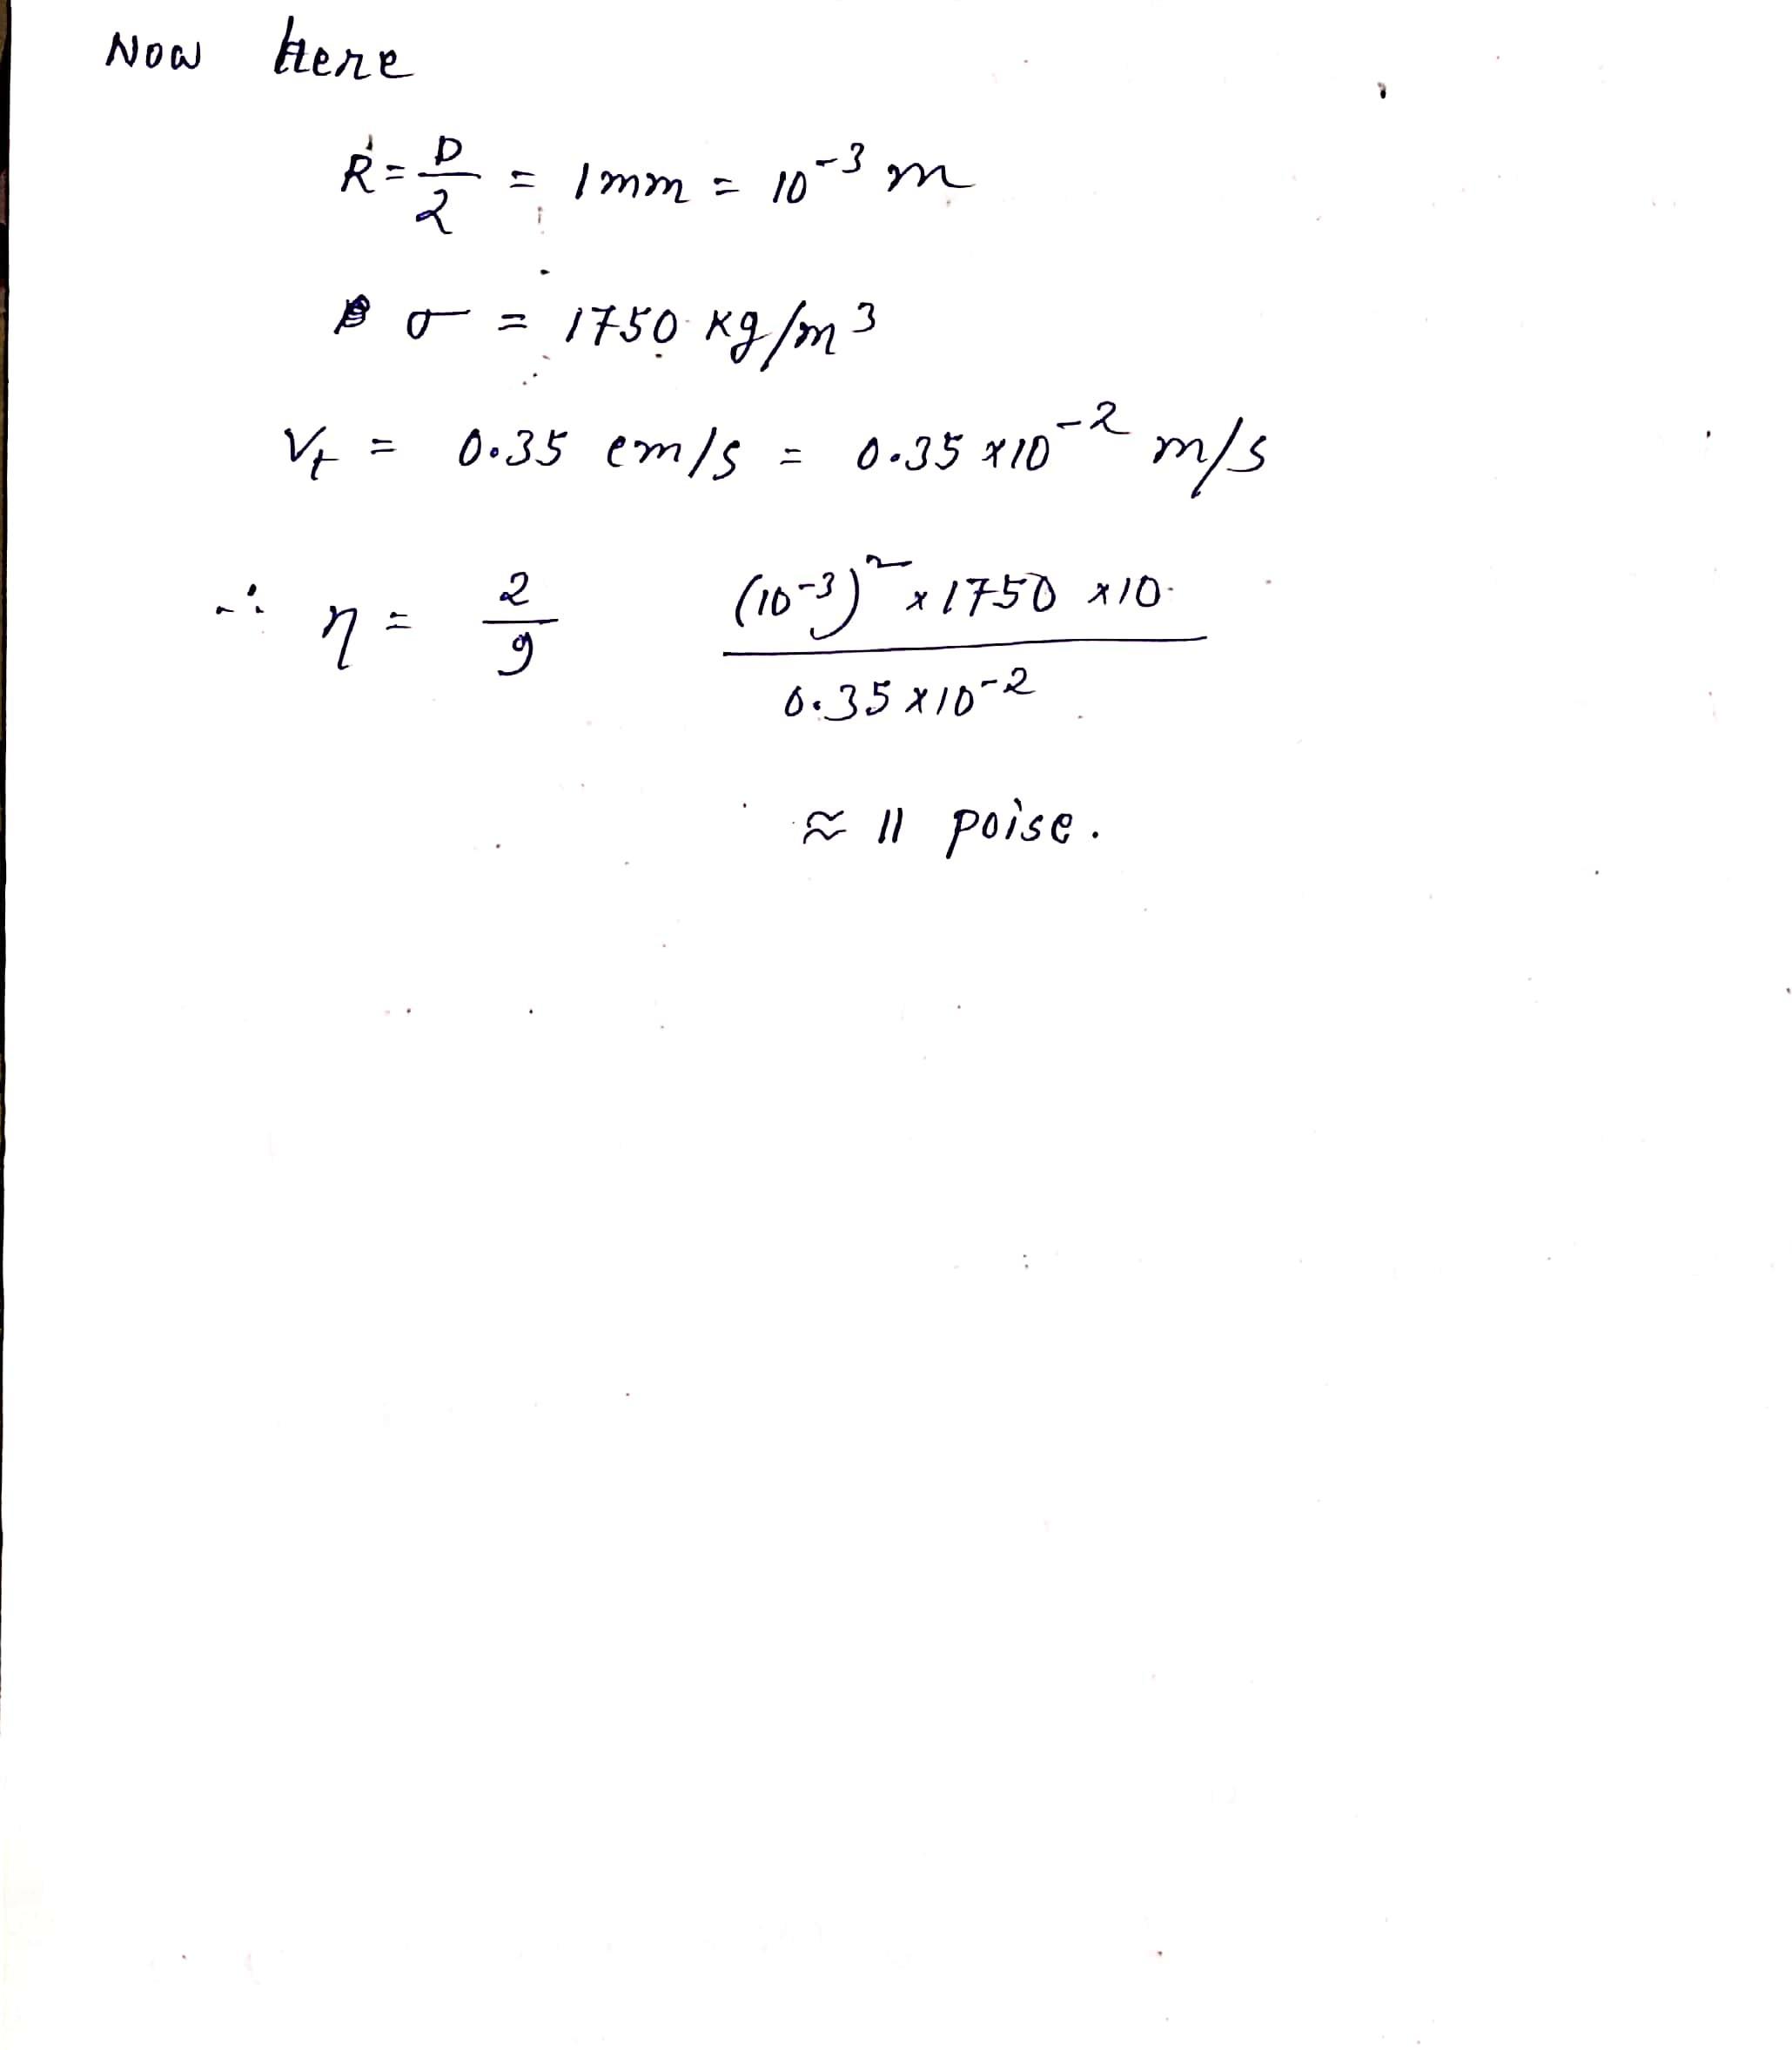 Now Here
R = D/2 = 1mm = 10⁻³ m
σ = 1750 kg/m³
Vt = 0.35 cm/s = 0.35 x 10⁻² m/s
∴ η = 2/9 (10⁻³)² x 1750 x 10 / 0.35 x 10⁻²
≈ 11 poise.